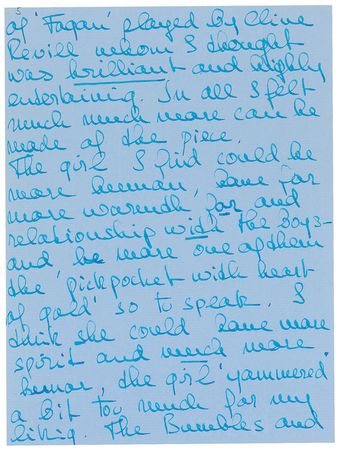 5
of 'Fagan' played by Clive
Revill whom I thought
was brilliant and highly
entertaining. In all I felt
much much more can be
made of the piece.
The girl I find could be
more human, have far
more warmth, for and
relationship with the Boys-
and be more one of them
the 'pickpocket with heart
of gold' so to speak. I
think she could have more
spirit and much more
humor, the girl 'yammered'
a bit too much for my
liking. The Bumbles and